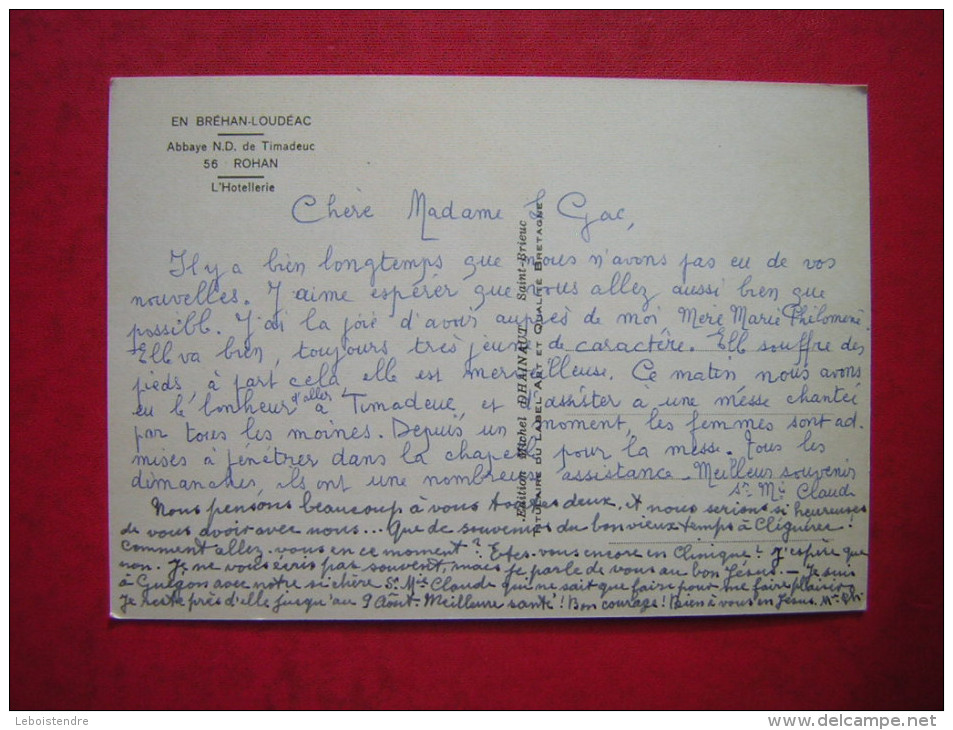 EN BRÉHAN-LOUDÉAC
Abbaye N.D. de Timadeuc
56 ROHAN
L'Hotellerie
Chère Madame Le Gac,
Il y a bien longtemps que nous n'avons pas eu de vos
nouvelles. J'aime espérer que vous allez aussi bien que
possible. J'ai la joie d'avoir auprès de moi Mère Marie Philomène.
Elle va bien, toujours très jeune de caractère. Elle souffre des
pieds, à part cela, elle est merveilleuse. Ce matin nous avons
eu le bonheur d'aller à Timadeuc, et d'assister à une messe chantée
par tous les moines. Depuis un moment, les femmes sont ad
mises à pénétrer dans la chapelle pour la messe. Tous les
dimanches, ils ont une nombreuse assistance - Meilleur souvenir
Sr. Me Claude
Nous pensons beaucoup à vous tous les deux, et nous serions si heureuses
de vous avoir avec nous... Que de souvenirs du bon vieux temps à Cléguérec!
Comment allez-vous en ce moment? Etes-vous encore en Clinique? J'espère que
non. Je ne vous écris pas souvent, mais je parle de vous au bon Jésus. - Je suis
à Guégon avec notre si chère Sr Me Claude qui ne sait que faire pour me faire plaisir.
Je reste près d'elle jusqu'au 9 Août - Meilleure santé! Bon courage! Bien à vous en Jésus. Mre Phi
Edition Michel DHAINAUT Saint-Brieuc
TITULAIRE DU LABEL ART ET QUALITÉ BRETAGNE
Leboistendre
www.delcampe.net